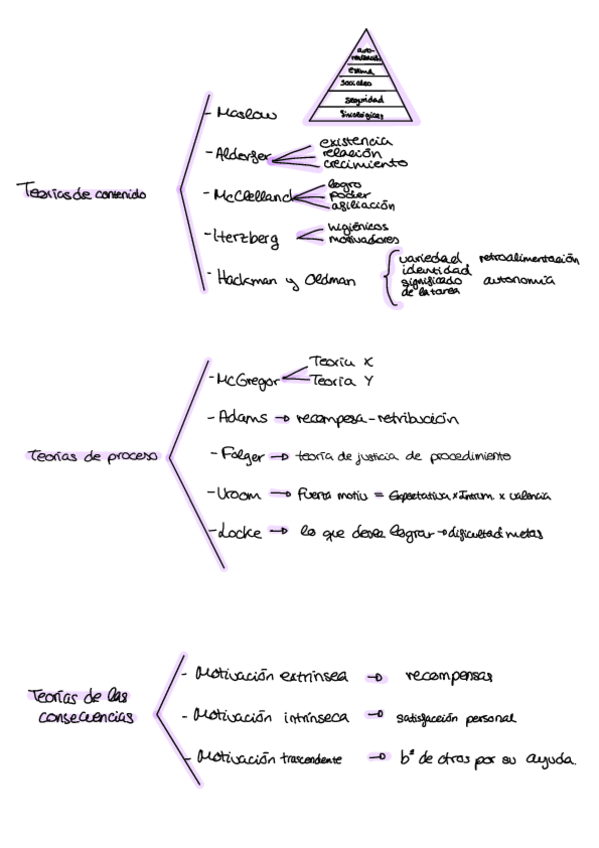 auto-
realización
estima
sociales
seguridad
fisiológicas
Teorías de contenido
- Maslow
- Alderfer
existencia
relación
crecimiento
- McClelland
logro
poder
afiliación
- Herzberg
higiénicos
motivadores
- Hackman y Oldman
variedad retroalimentación
identidad
significado autonomía
de la tarea
Teorías de proceso
- McGregor
Teoría X
Teoría Y
- Adams → recompesa - retribución
- Folger → teoría de justicia de procedimiento
- Vroom → Fuerza motiv = Expectativa x Intrum. x valencia
- Locke → lo que desea lograr → dificultad metas
Teorías de las
consecuencias
- Motivación extrínsea → recompensas
- Motivación intrínseca → satisfacción personal
- Motivación trascendente → bº de otros por su ayuda.